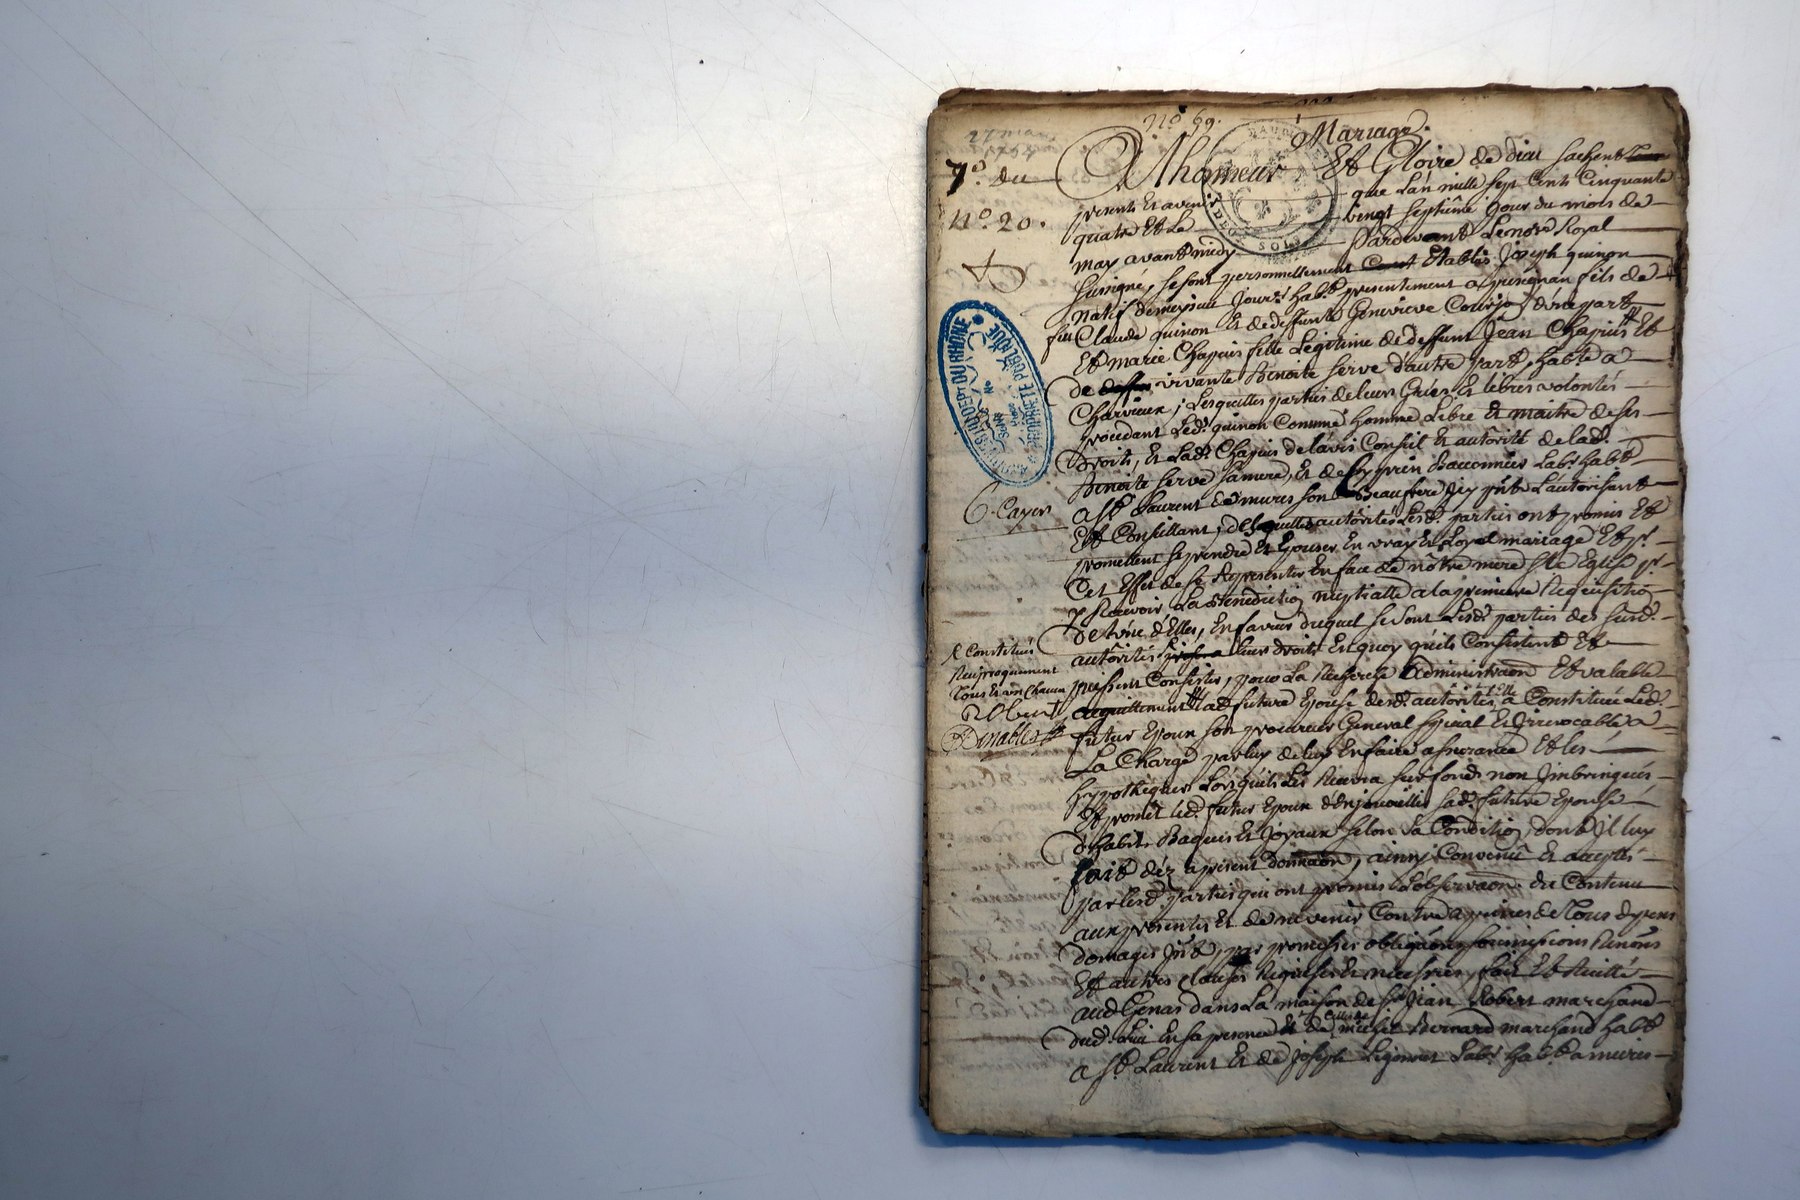 no 69.
Mariage.
27 mai
1754
7º. du
Nº 20.
A lhonneur Et Gloire de dieu sachent
presents et avenir que Lan mille sept Cents Cinquante
quatre Et Le vingt septième jour du mois de
may avant midy Pardevant Le nore Royal
soussigné, se sont personnellement Etablis Joseph quinon
natif de meysieu Jour.r hab.t presentement a pusignan fils de
feu Claude quinon Et de deffunte Genevieve dune part
Et marie Chapuis fille Legitime de deffunt Jean Chapuis Et
de vivante Benoite serve d'autre part, habte a
Charvieux, Lesquelles parties de leurs Grées Et libres volontés
procedant Led. quinon Comme homme Libre Et maitre de ses
droits, Et Lad. Chapuis de lavis Conseil Et autorité de lad.
Benoite serve sa mere, Et de Baconnier Lab.r habt
a St Laurent de mures son Beaufrere Jcy pnt Lautorisant
Et Conseillant, desquelles autorités Lesd. parties ont promis Et
promettent se prendre Et Epouser En vray Et Loyal mariage Et pr.
Cet Effet de se Representer En face de nôtre mere Ste Eglise pr
y Recevoir La Benediction nuptialle a la premiere Requisition
de Lune d'Elles, En faveur duquel se sont Lesd. parties des susd.
autorités leur droits En quoy quils Consistent Et
puissent Consister, pour La Recherche administraon Et valable
acquittement Lad. future Epouse desd. autorités a Constitué Led.
futur Epoux son procureur General special Et Jrrevocable a
La Charge par luy de luy En faire assurance Et les
hypothequer Lorsquils Les Recevra sur fonds non Jmbringués
Et promet led. futur Epoux d'Enjoailler sad. future Epouse
d'habits Bagues Et joyaux selon sa Condition, dont Jl luy
fait déz apresent donnaon, ainsy Convenu Et accepté
par lesd. parties qui ont promis Lobservaon du Contenu
aux presentes Et de ne venir Contre a peines de Tous depens
domages Jnts, par promesses obligaons soumissions Renons
Et autres clauses Requises Et necess.res, fait Et Recitté
aud. Genas dans La maison de Sr Jean Robert marchand
dud. Lieu En sa presence Et de michel Bernard marchand habt
a St Laurent Et de Joseph Ligonnet Lab.r habt a mures
C. Cayer
Constitués
Reciproquement
Tous Et un Chacun
Robert
ARCHIVES DU DEPT DU RHONE
PROPRIETE PUBLIQUE
SOLS